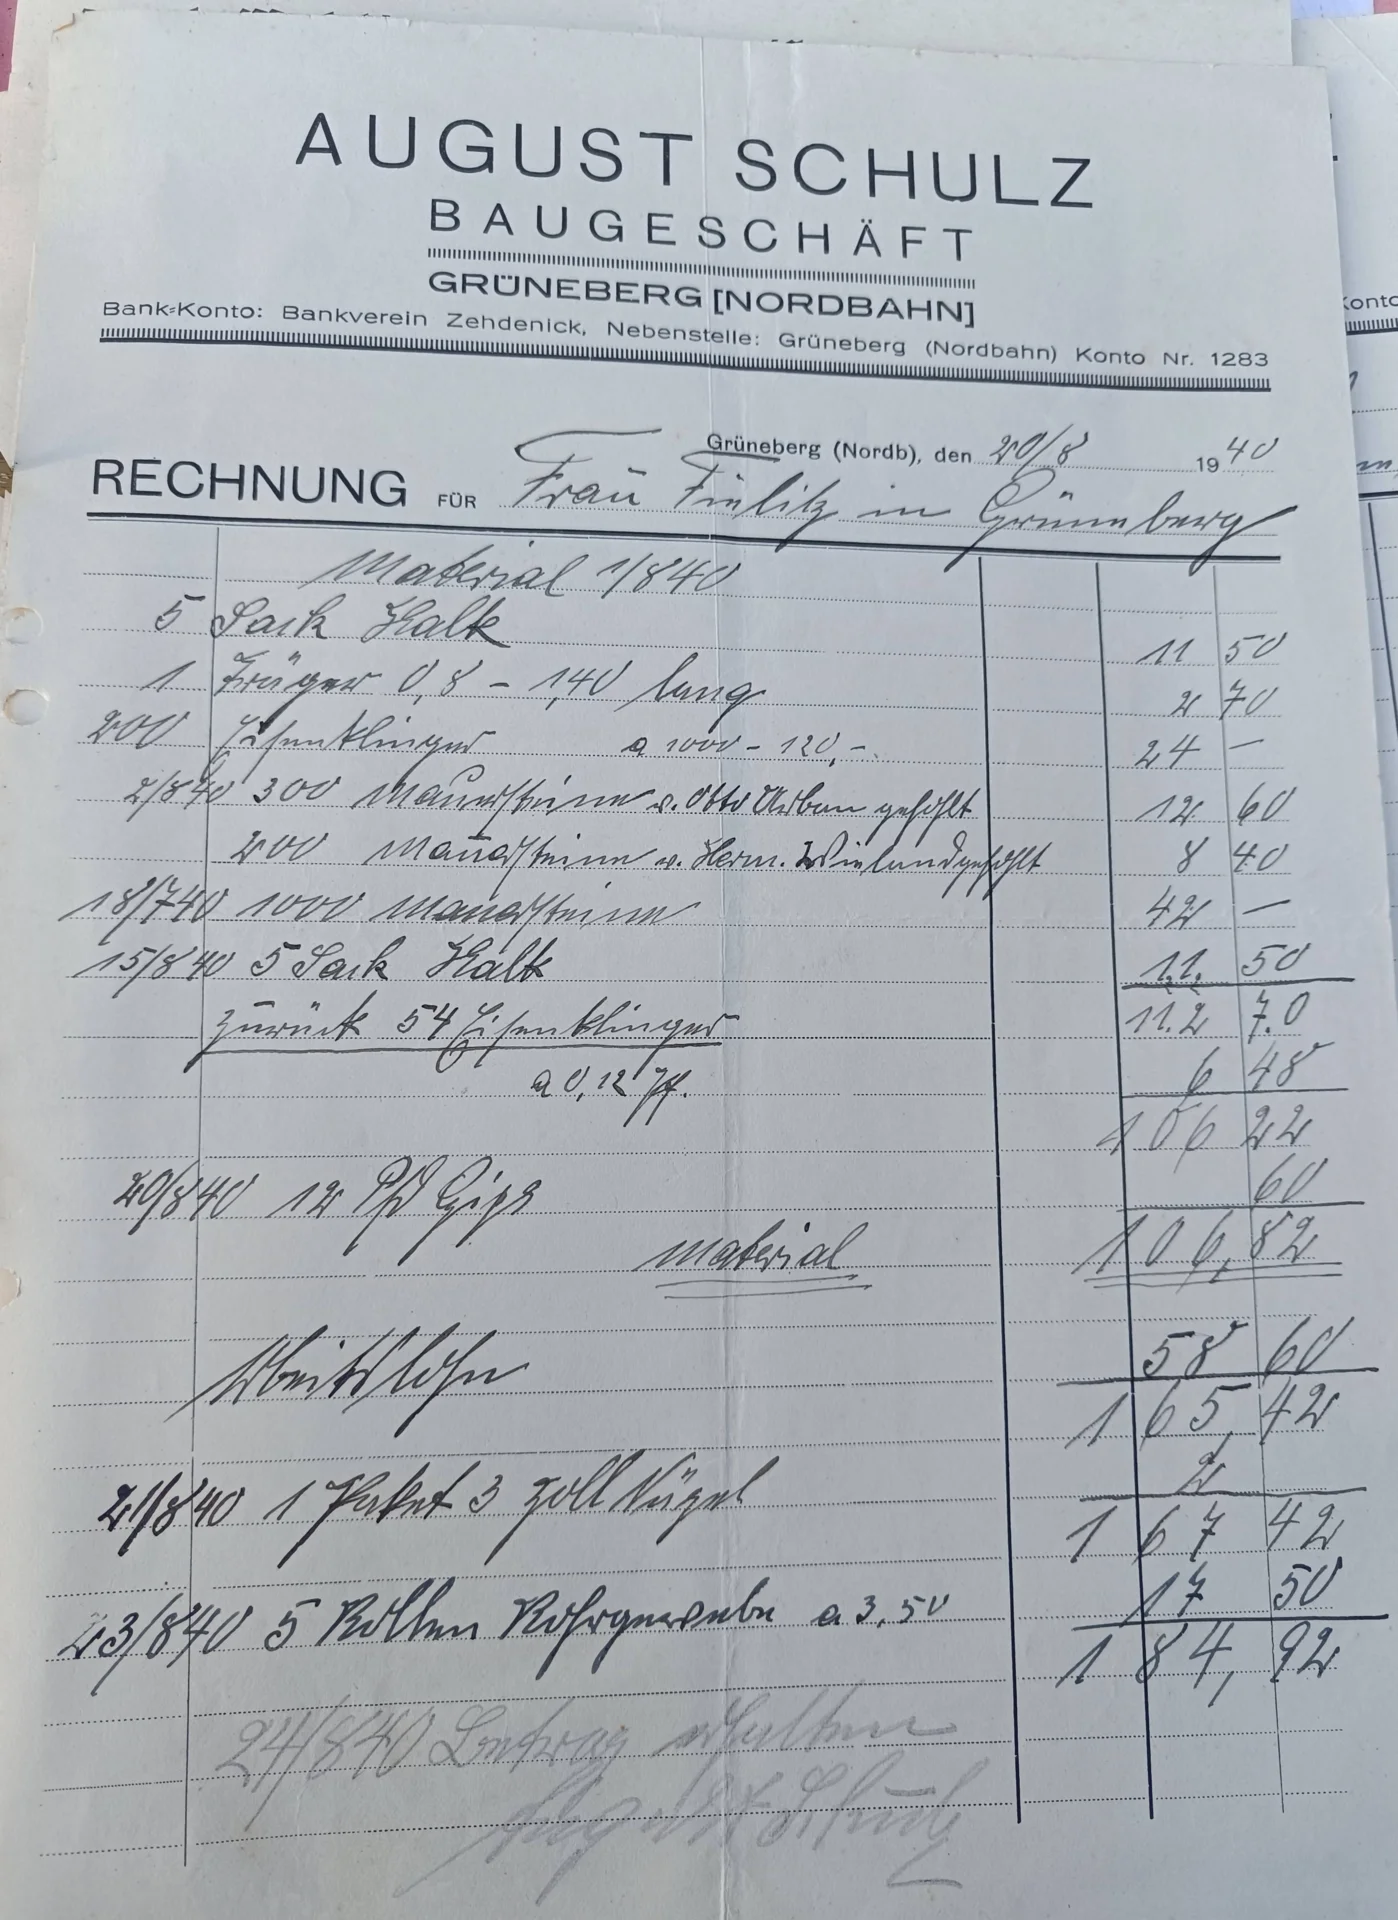 AUGUST SCHULZ
BAUGESCHÄFT
GRÜNEBERG [NORDBAHN]
Bank-Konto: Bankverein Zehdenick, Nebenstelle: Grüneberg (Nordbahn) Konto Nr. 1283
Grüneberg (Nordb), den 20/8 1940
RECHNUNG FÜR Frau Fielitz in Grüneberg
Material 1/8 40
5 Sack Kalk 11 50
1 Träger 0,8 - 1,40 lang 2 70
200 Eisenklinger a 1000 - 120,- 24 —
2/8 40 300 Mauersteine v. Otto Urban gehohlt 12 60
200 Mauersteine v. Herm. Wieland gehohlt 8 40
18/7 40 1000 Mauersteine 42 —
15/8 40 5 Sack Kalk 11. 50
112 70
zurück 54 Eisenklinger
a 0,12 Pf. 6 48
106 22
20/8 40 12 Pfd Gips 60
Material 106,82
Arbeitslohn 58 60
165,42
21/8 40 1 Paket 3 Zoll Nägel 2
167 42
23/8 40 5 Rollen Rohrgewebe a 3,50 17 50
184,92
24/8 40 Betrag erhalten
August Schulz